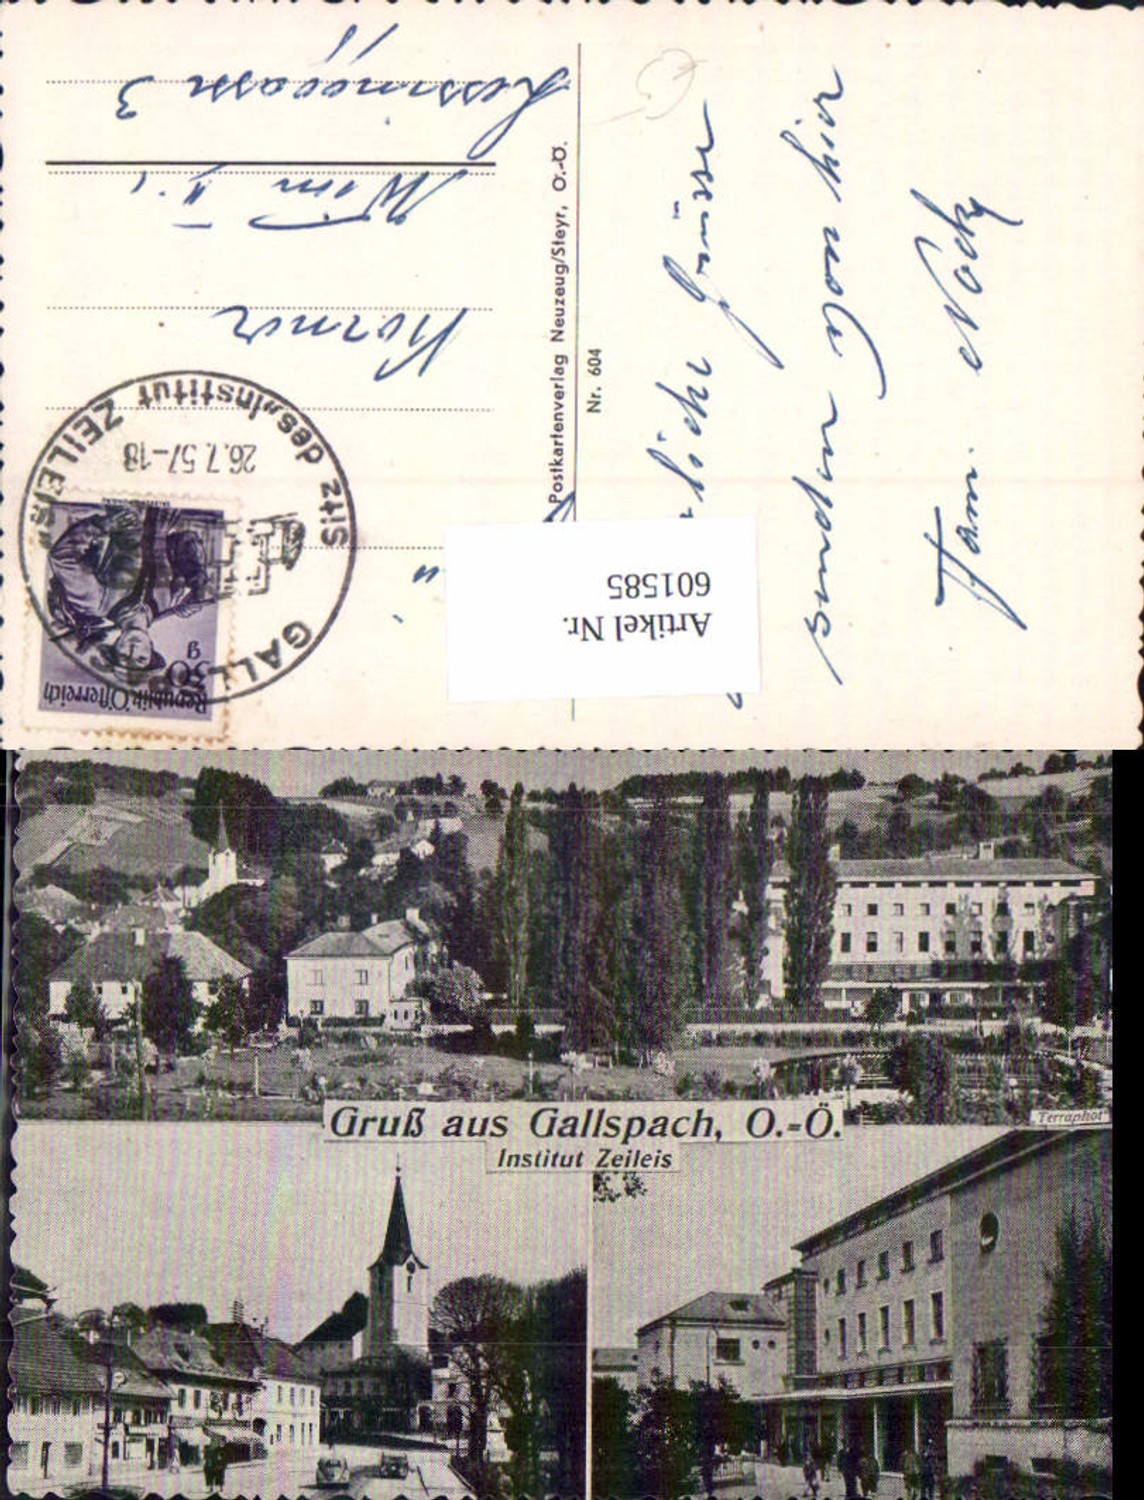 Herzliche Grüsse
senden von hier
Fam. Nosky
Postkartenverlag Neuzeug/Steyr, O.-Ö.
Nr. 604
Artikel Nr.
601585
Republik Österreich
50
g
GALLSPACH
Sitz des „Institut ZEILEIS"
26.7.57-18
Wien II.
3
Gruß aus Gallspach, O.-Ö.
Institut Zeileis
"Terraphot"